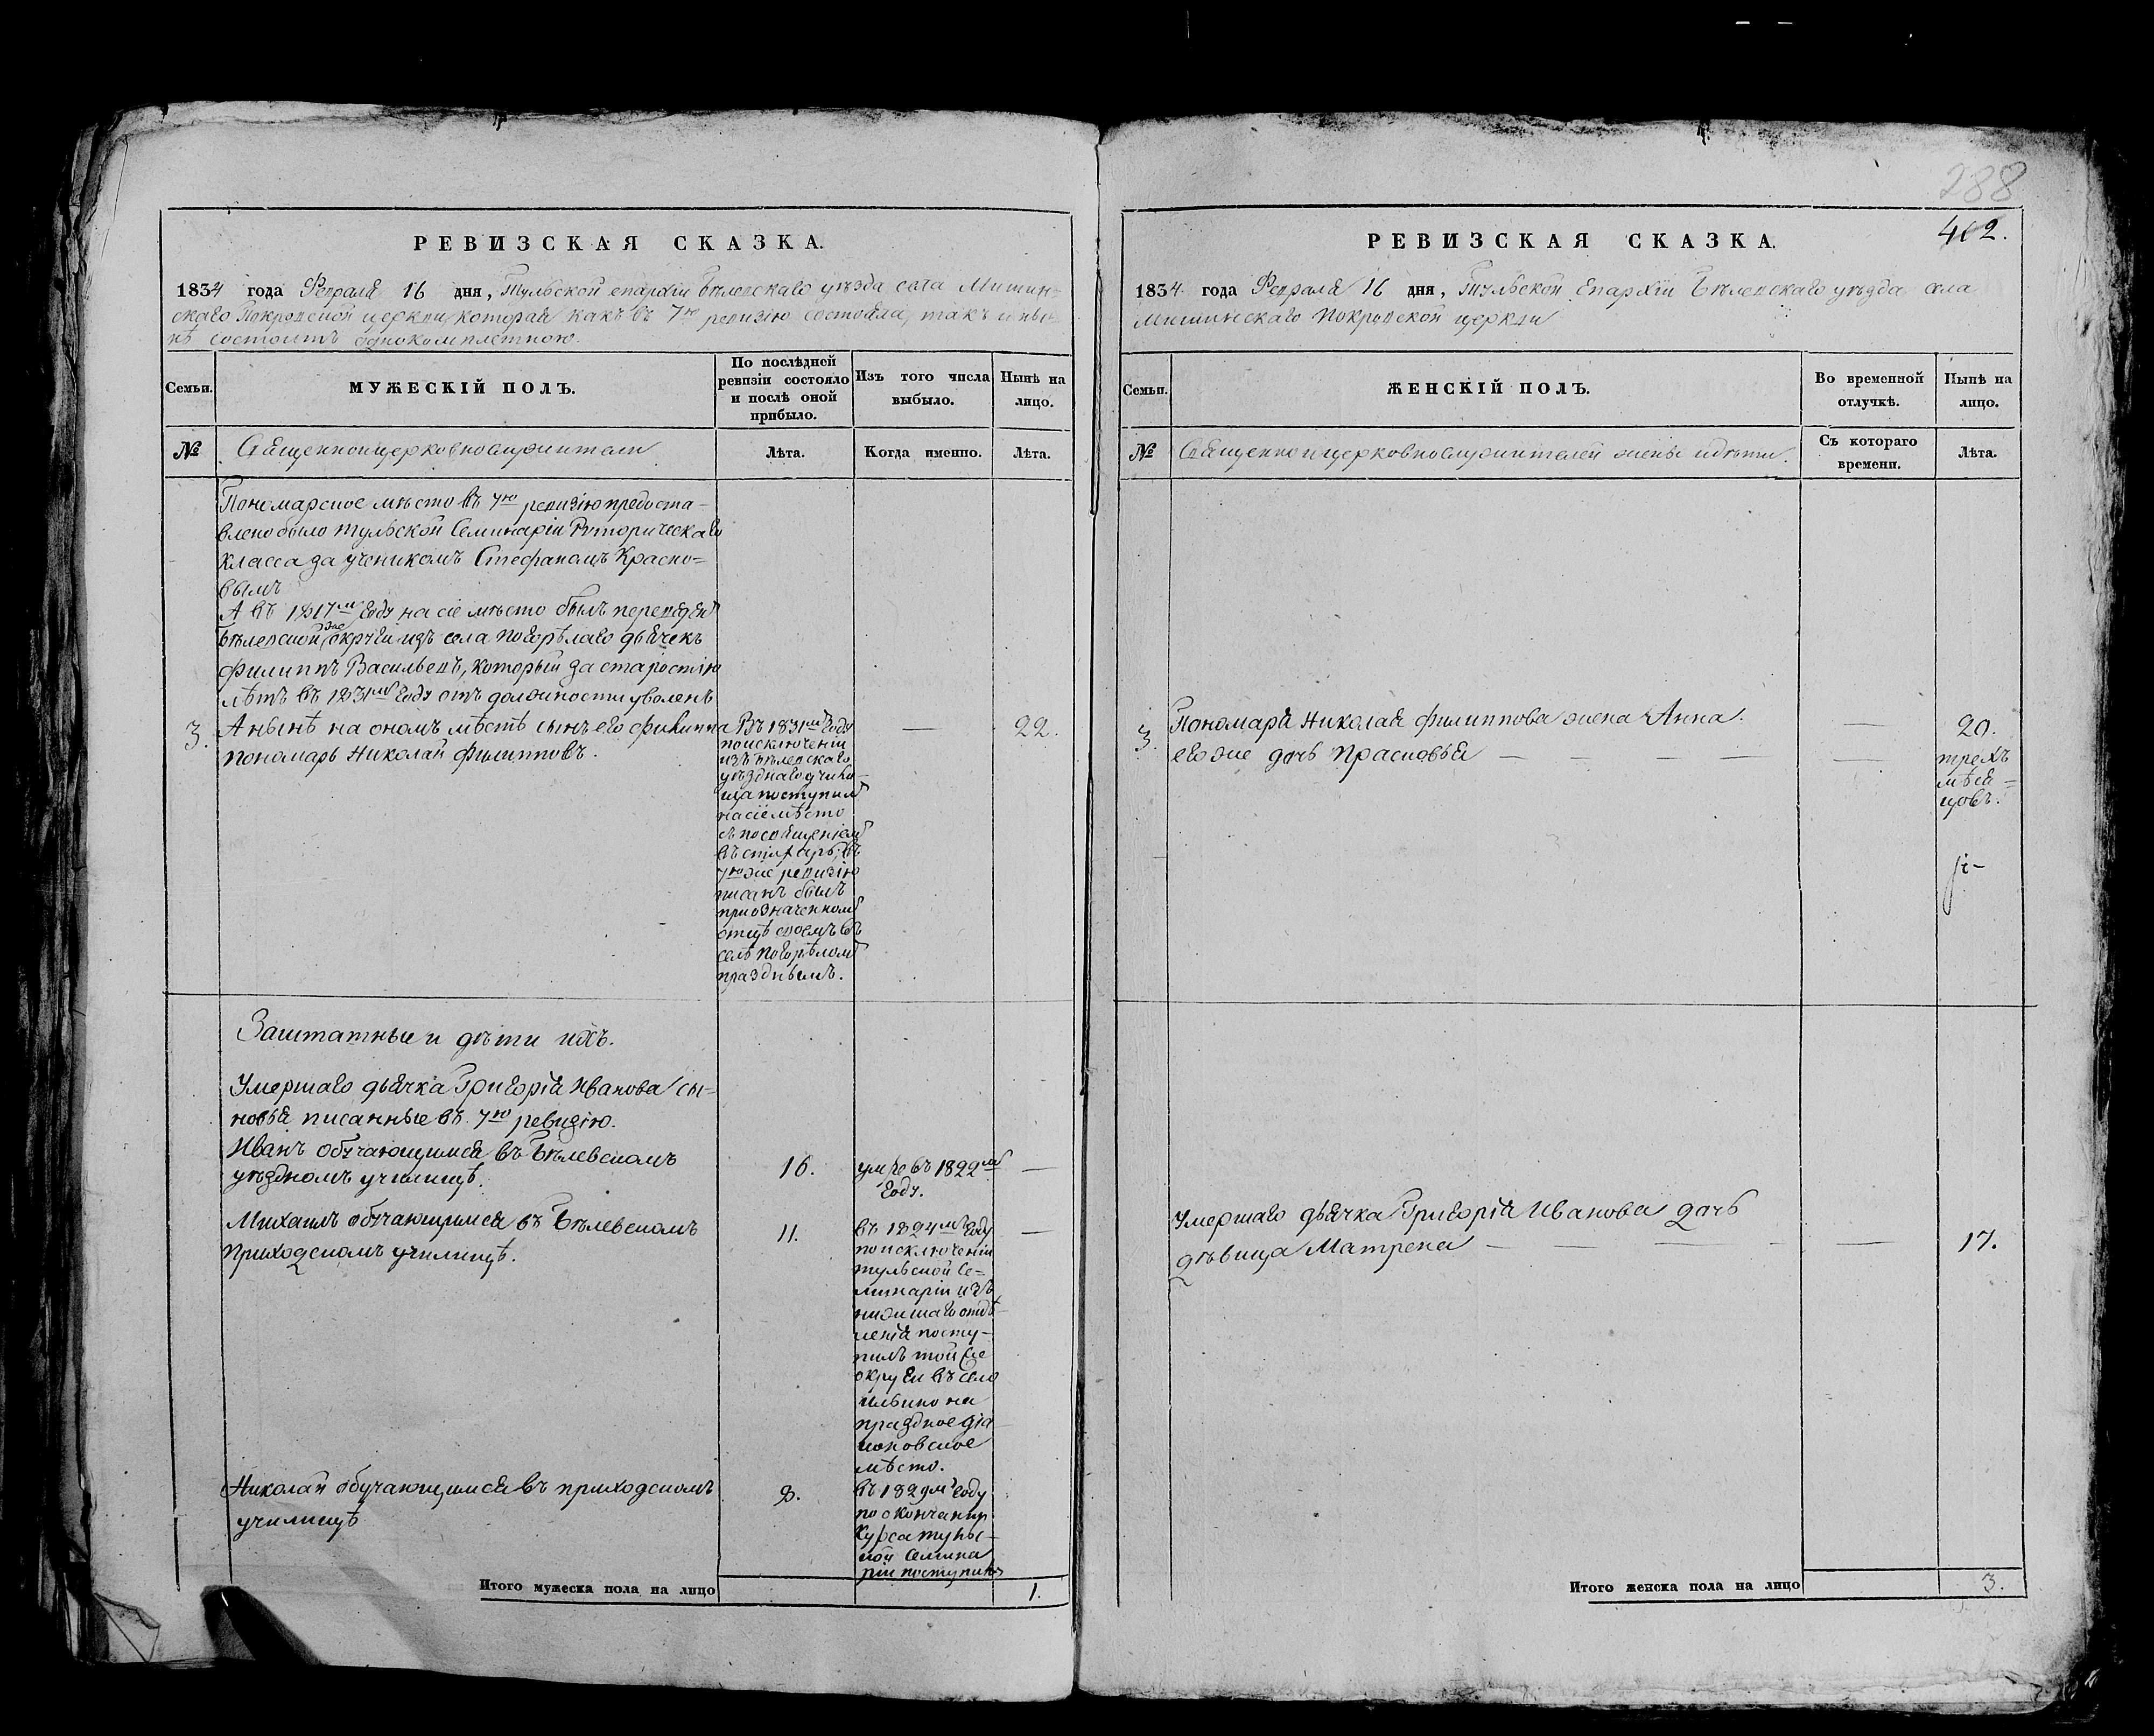 288
402.
РЕВИЗСКАЯ СКАЗКА.
1834 года Февраля 16 дня, Тульской епархіи Бѣлевскаго уѣзда села Мишин-
скаго Покровской церкви которая какъ въ 7ю ревизію состояла, такъ и ны-
нѣ состоитъ однокомплетною.
Семьи.
МУЖЕСКІЙ ПОЛЪ.
По послѣдней
ревизіи состояло
и послѣ оной
прибыло.
Изъ того числа
выбыло.
Нынѣ на
лицо.
№
Священноцерковнослужители
Лѣта.
Когда именно.
Лѣта.
Пономарское мѣсто въ 7ю ревизію предоста-
влено было Тульской Семинаріи Риторическаго
класса за ученикомъ Стефаномъ Красно-
вымъ
А въ 1817м году на сіе мѣсто былъ переведен
Бѣлевской же округи изъ села Погорѣлаго дьячекъ
Филиппъ Васильевъ, который за старостію
лѣтъ въ 1831мъ году отъ должности уволенъ
3.
А нынѣ на ономъ мѣстѣ сынъ его Филиппа
пономарь Николай Филипповъ.
Въ 1831мъ году
по исключеніи
изъ Бѣлевскаго
уѣзднаго учили-
ща поступилъ
на сіе мѣсто
съ посвященіемъ
въ стихарь; въ
7ю же ревизію
писанъ былъ
при означенномъ
отцѣ своемъ въ
селѣ Погорѣломъ
празднымъ.
—
22.
Заштатные и дѣти ихъ.
Умершаго дьячка Григорія Иванова сы-
новья писанные въ 7ю ревизію.
Иванъ обучающимся въ Бѣлевскомъ
уѣздномъ училищѣ.
16.
умре въ 1822мъ
году.
—
Михаилъ обучающимся въ Бѣлевскомъ
Приходскомъ училищѣ.
11.
въ 1824мъ году
по исключеніи
тульской Се-
минаріи изъ
низшаго отдѣ-
ленія посту-
пилъ той же
округи въ село
Ильино на
праздное діа
коновское
мѣсто.
—
Николай обучающимся въ приходскомъ
училищѣ
8.
въ 1829м году
по окончаніи
Курса тульс-
кой Семина
ріи поступилъ
Итого мужеска пола на лицо
1.
РЕВИЗСКАЯ СКАЗКА.
1834 года Февраля 16 дня, Тульской Епархіи Бѣлевскаго уѣзда села
Мишинскаго Покровской церкви
Семьи.
ЖЕНСКІЙ ПОЛЪ.
Во временной
отлучкѣ.
Нынѣ на
лицо.
№
Священноицерковнослужителей жены и дѣти.
Съ котораго
времени.
Лѣта.
3.
Пономаря Николая Филиппова жена Анна.
—
20.
его же дочь Прасковья — — — —
—
трехъ
мѣся-
цовъ.
Умершаго дьячка Григорія Иванова дочь
дѣвица Матрена — — — —
—
17.
Итого женска пола на лицо
3.